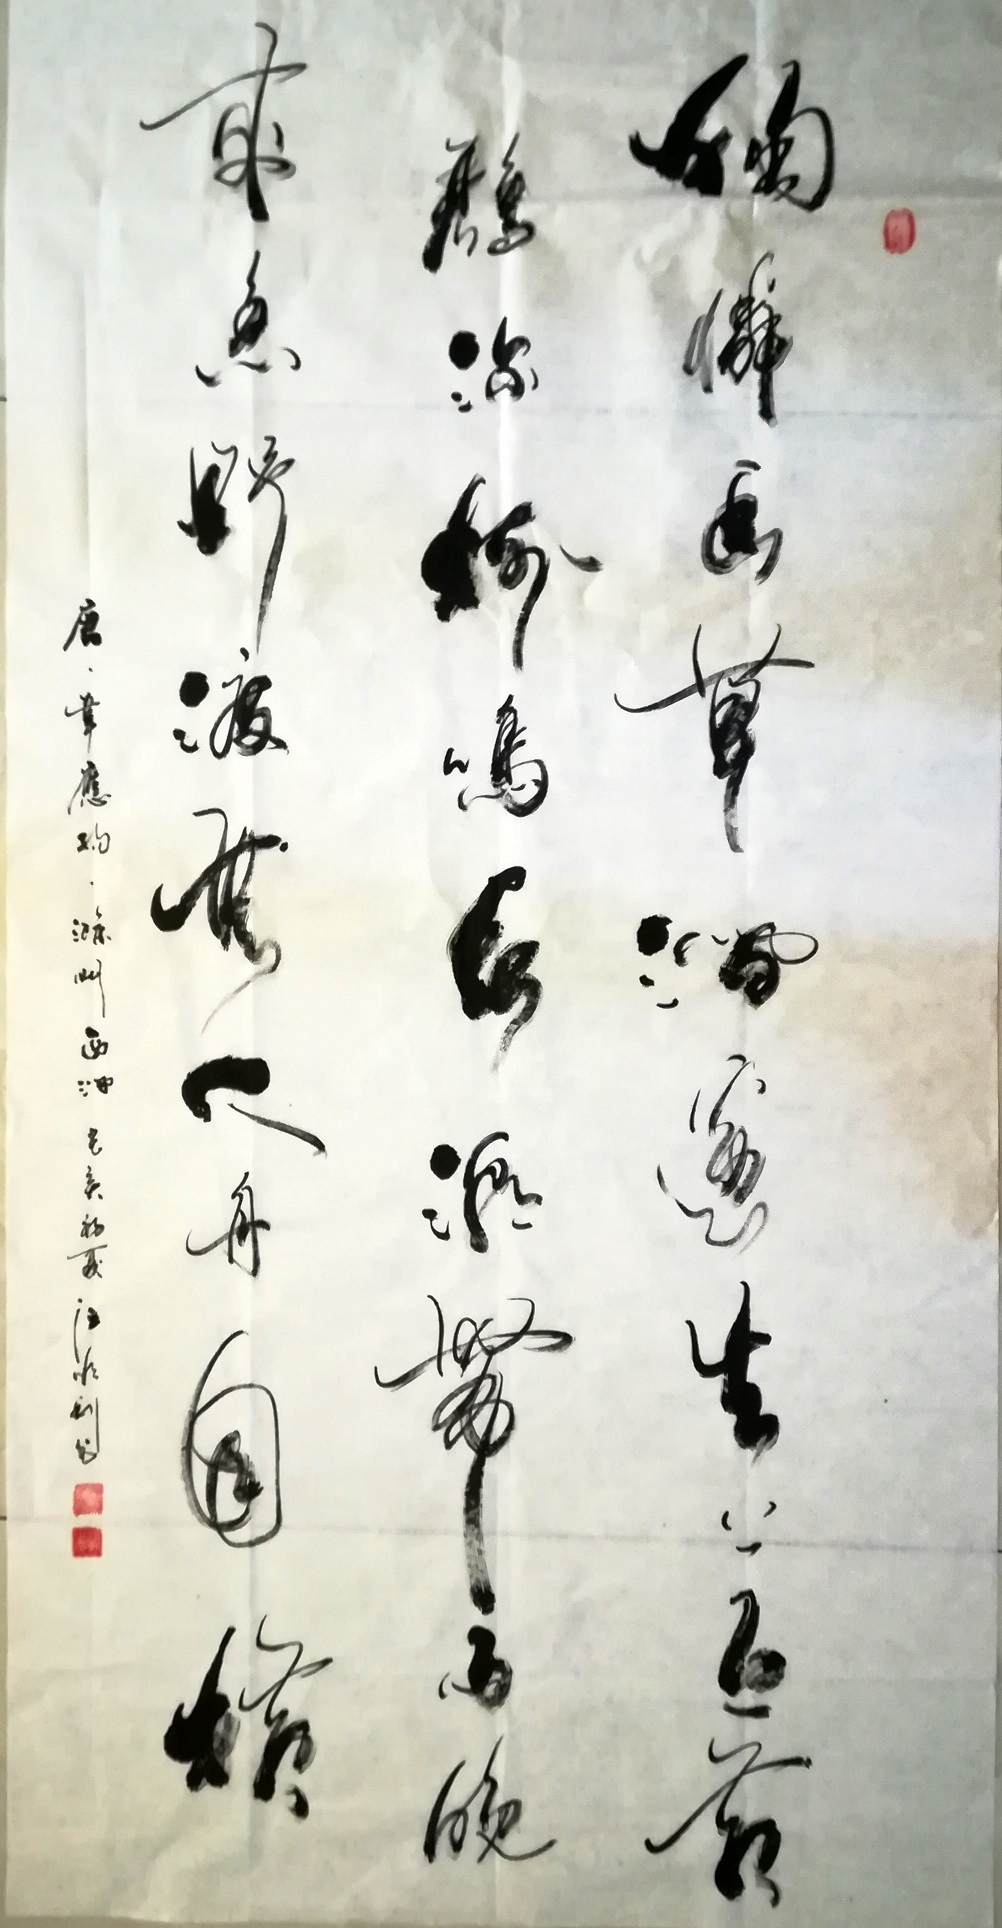 獨憐幽草澗邊生上有黃
鸝深樹鳴春潮帶雨晚
來急野渡無人舟自橫
唐·韋應物·滁州西澗 己亥初夏 利書